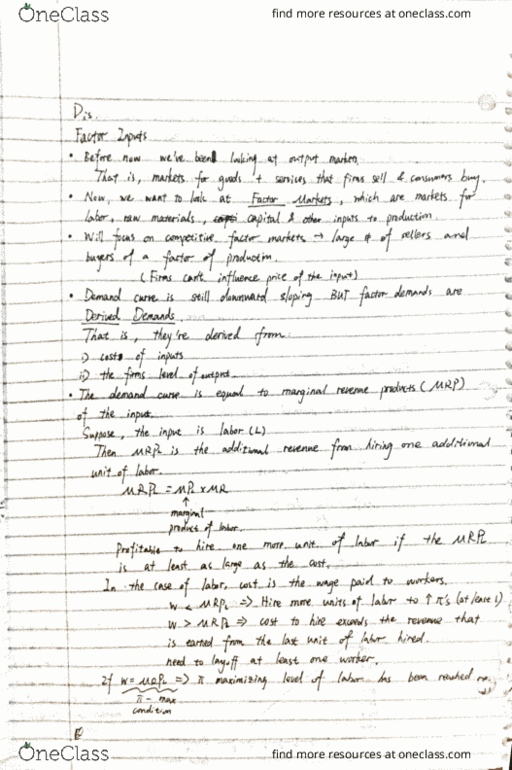 OneClass
find more resources at oneclass.com
Dis.
Factor Inputs
• Before now we've been looking at output market.
That is, markets for goods + services that firms sell & consumers buy.
• Now, we want to look at Factor Markets, which are markets for
labor, raw materials, capital & other inputs to production.
• Will focus on competitive factor markets → large # of sellers and
buyers of a factor of production.
(Firms can't influence price of the input)
• Demand curve is still downward sloping BUT factor demands are
Derived Demands.
That is, they're derived from:
i) costs of inputs
ii) the firms level of output.
• The demand curve is equal to marginal revenue products (MRP)
of the input.
Suppose, the input is labor (L)
Then MRPL is the additional revenue from hiring one additional
unit of labor.
MRPL = MPL x MR
↑
marginal
product of labor.
Profitable to hire one more unit of labor if the MRPL
is at least as large as the cost.
In the case of labor, cost is the wage paid to workers.
W < MRPL => Hire more units of labor to ↑ π's (at least 1)
W > MRPL => cost to hire exceeds the revenue that
is earned from the last unit of labor hired.
need to layoff at least one worker.
If W = MRPL => π maximizing level of labor has been reached
π - max
condition
OneClass
find more resources at oneclass.com